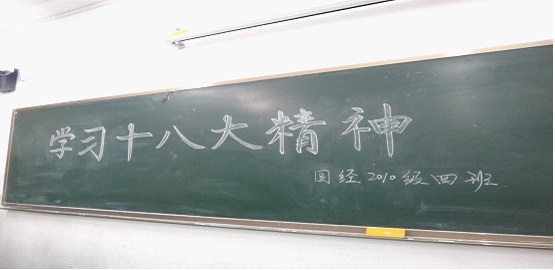 学习十八大精神
国经2010级四班